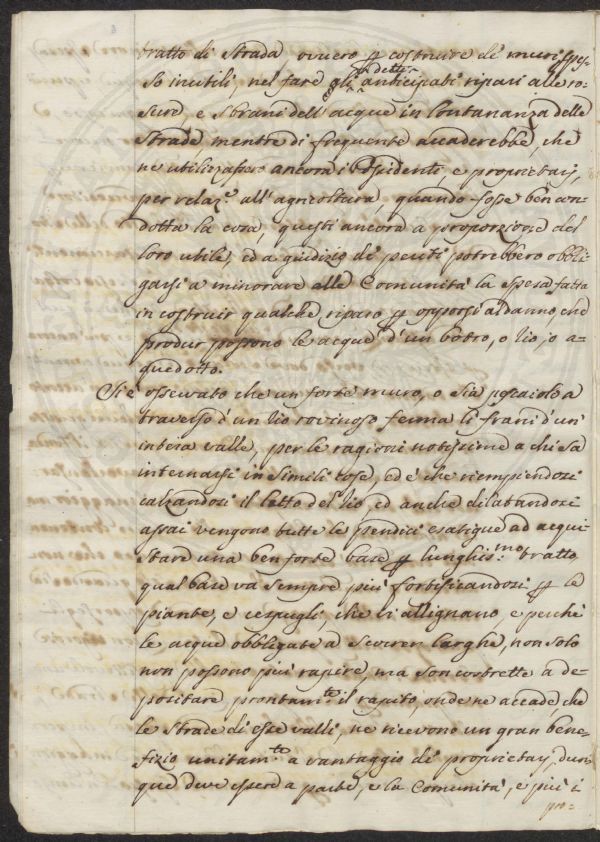 tratto di Strada ovvero p costruire de' muri spes-
so inutili, nel fare gli detti anticipati ripari alle ro-
sure, e sbrani dell'acque in lontananza delle
Strade mentre di frequente accaderebbe, che
ne utilizzassero ancora i Possidenti, e proprietarj,
per relaz.e all'agricoltura, quando fosse ben con-
dotta la cosa, questi ancora a proporzione del
loro utile, ed a giudizio di periti potrebbero obbli-
garsi a minorare alle Comunità la spesa fatta
in costruir qualche riparo p opporsi al danno, che
produr possono le acque d'un botro, o rio, o a-
quedotto.
Si è osservato che un forte muro, o sia pescaiolo a
traverso d'un rio rovinoso ferma li frani d'un'
intera valle, per le ragioni notissime a chi sà
internarsi in simili cose, ed è che riempiendosi
calzandosi il letto del rio, ed anche dilatandosi
assai vengono tutte le pendici esatique ad acqui-
stare una ben forte base p lunghis:mo tratto
qual base va sempre più fortificandosi p le
piante, e cespugli che vi allignano, e perchè
le acque obbligate a scorrer larghe, non solo
non possono più rapire, ma son costrette a de-
positare prontam.te il rapito, onde ne accade, che
le strade di esse valli, ne ricevono un gran bene-
fizio unitam.te a vantaggio di proprietarj, dun-
que deve essere a parte, e la Comunità, e più i
pro=